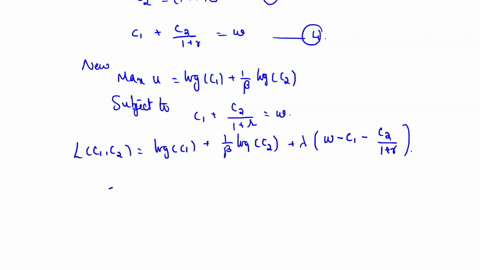 c₁ + c₂/(1+r) = w ——— ④
New
Max u = log(c₁) + 1/β log(c₂)
Subject to c₁ + c₂/(1+r) = w.
L(c₁,c₂) = log(c₁) + 1/β log(c₂) + λ (w - c₁ - c₂/(1+r)).